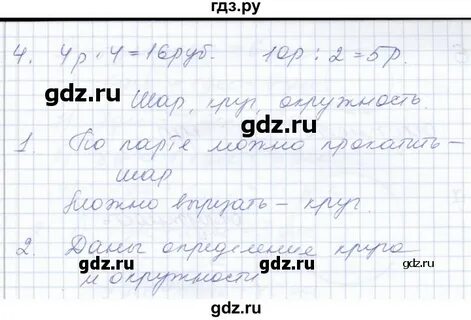 гдз.ру
4. 4р · 4 = 16руб. 10р : 2 = 5р.
gdz.ru gdz.ru
Шар, круг, окружность.
1. По парте можно прокатить –
gdz.ru gdz.ru
шар
Можно вырезать – круг.
2. Даны определения круга
gdz.ru gdz.ru
и окружности
гдз.рф